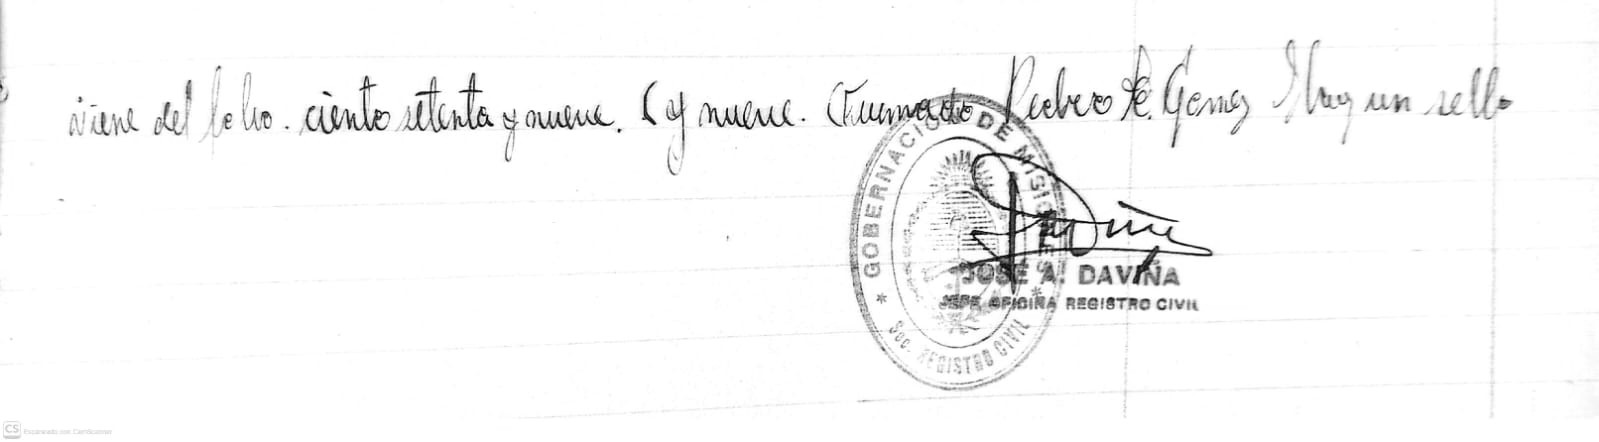 viene del folio. ciento setenta y nueve. (y nueve. Firmado Pedro R. Gomez Hay un sello
GOBERNACION DE MISIONES
JOSÉ A. DAVIÑA
JEFE OFICINA REGISTRO CIVIL
* Sec. REGISTRO CIVIL *
CS Escaneado con CamScanner